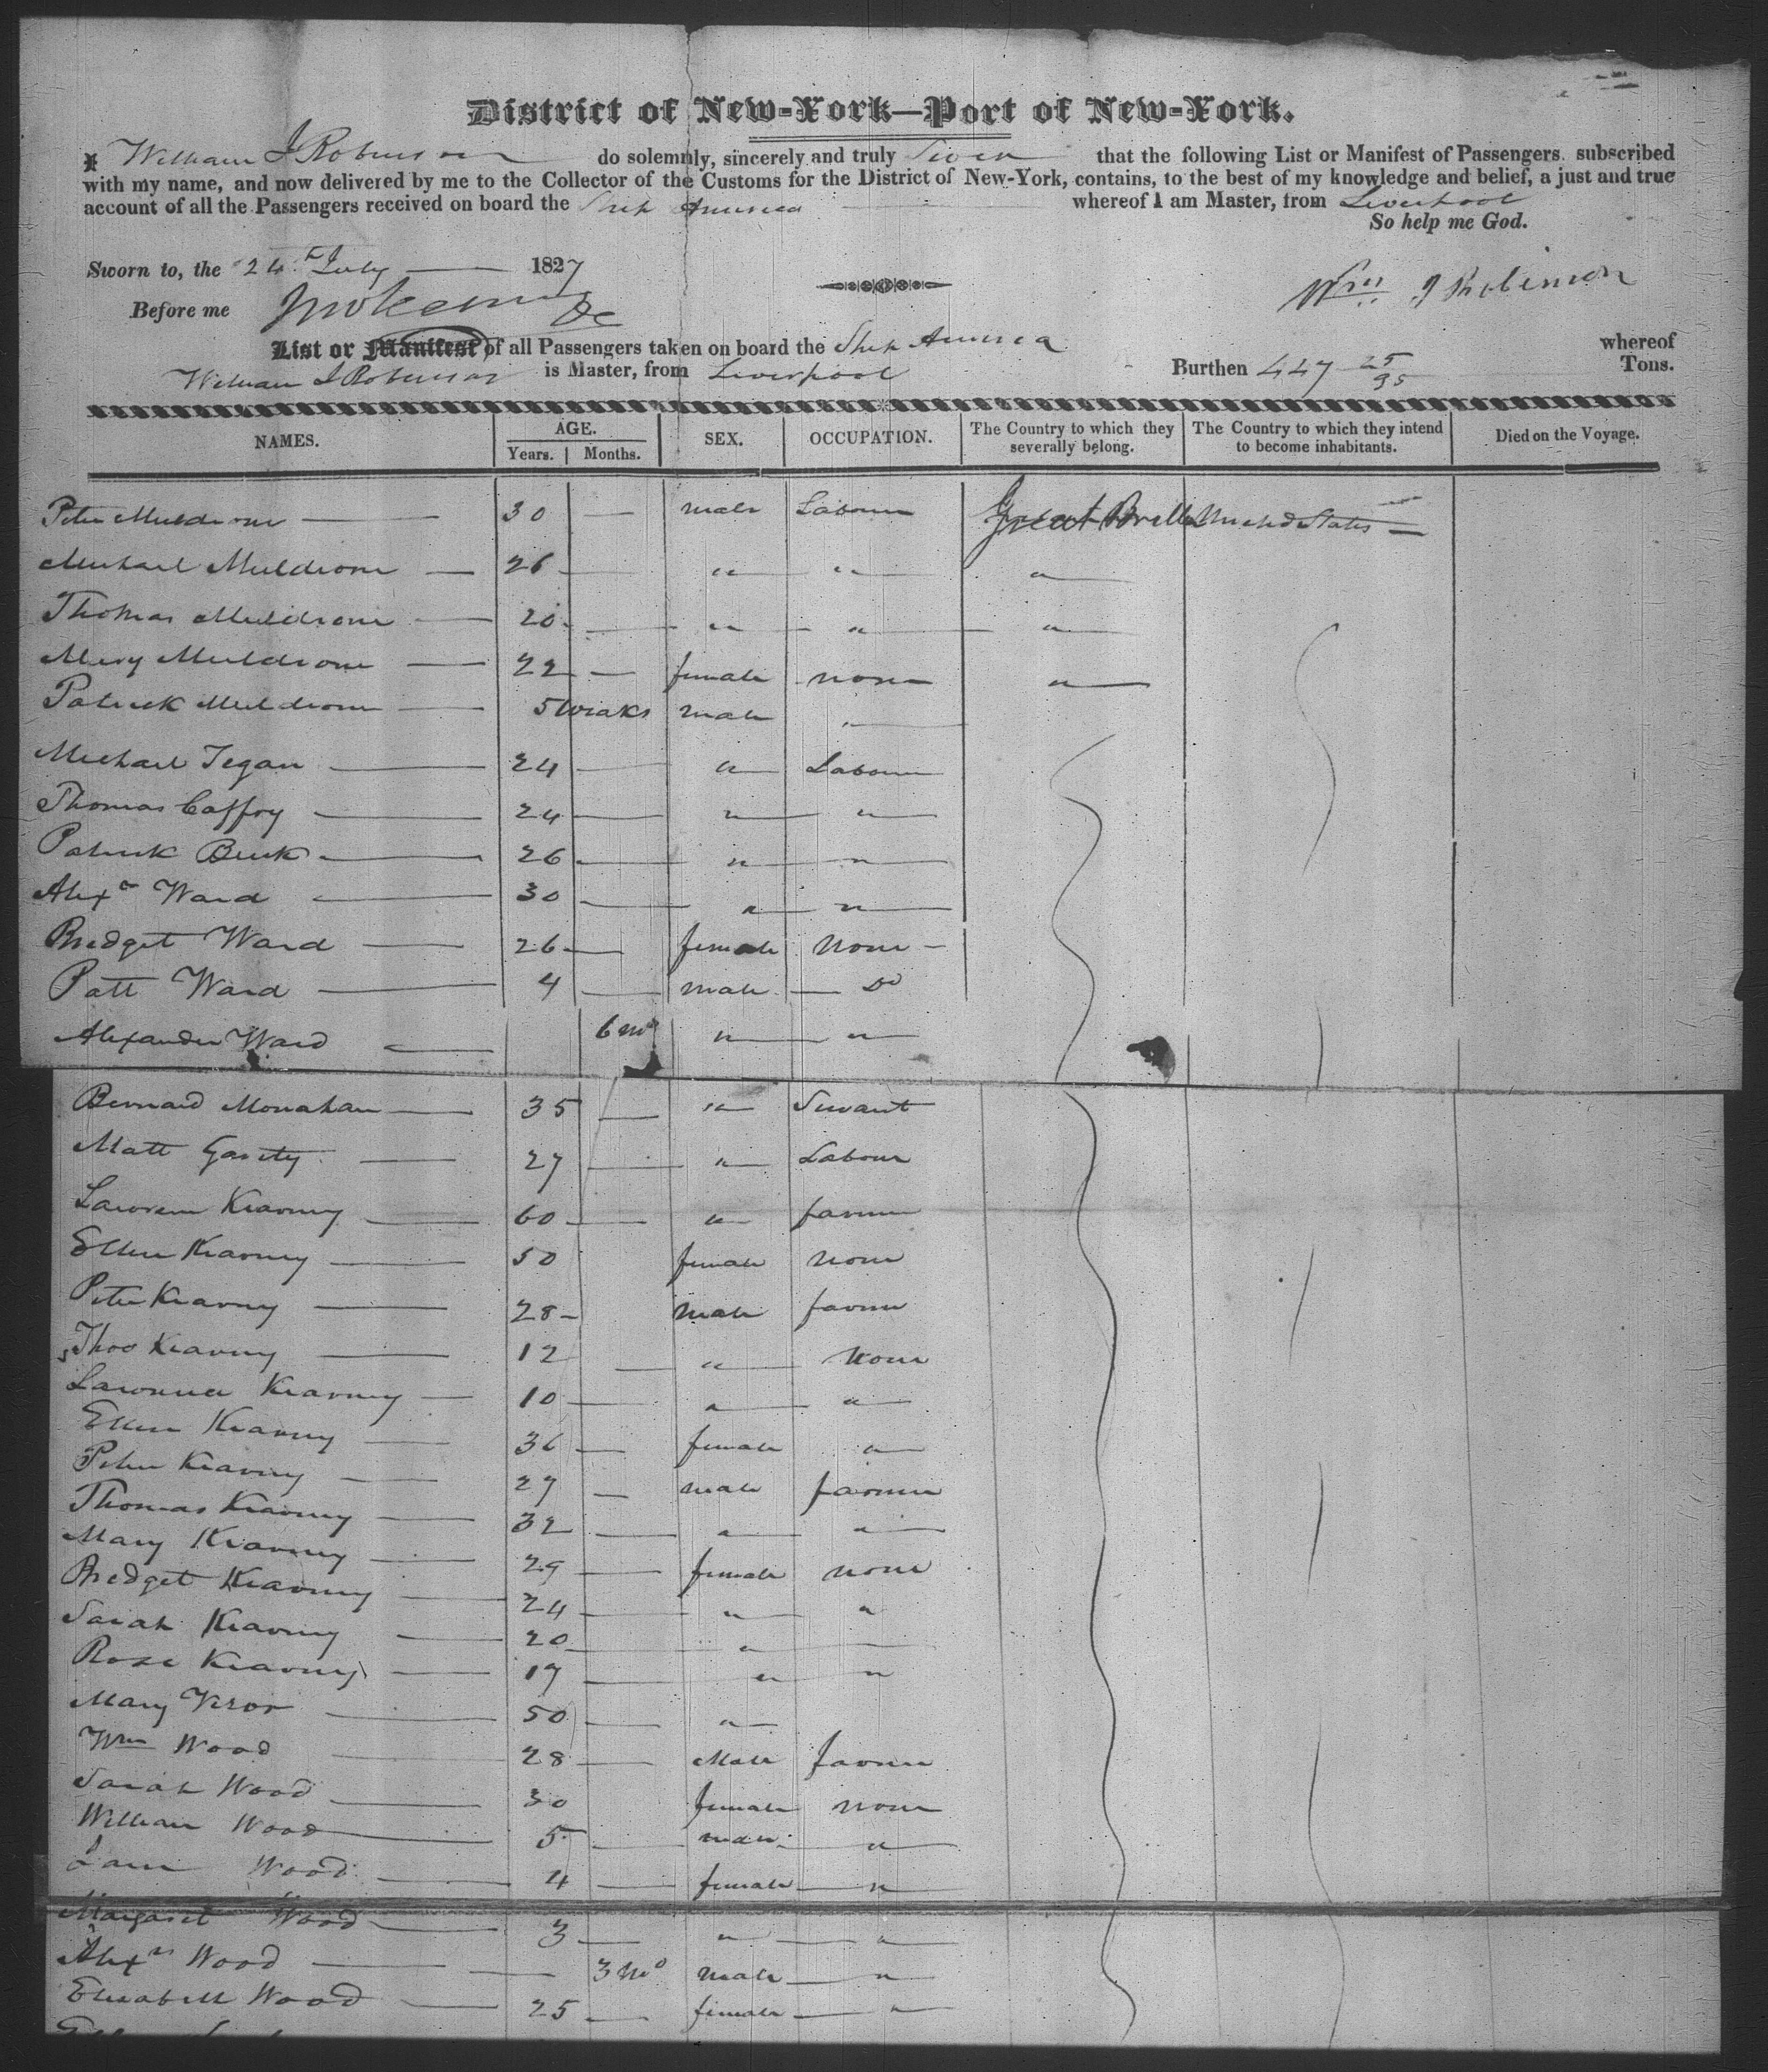 District of New-York—Port of New-York.
I William J Robinson do solemnly, sincerely and truly Swear that the following List or Manifest of Passengers subscribed
with my name, and now delivered by me to the Collector of the Customs for the District of New-York, contains, to the best of my knowledge and belief, a just and true
account of all the Passengers received on board the Ship America whereof I am Master, from Liverpool
So help me God.
Sworn to, the 24th July 1827
Before me
Wm J Robinson
List or Manifest of all Passengers taken on board the Ship America whereof
William J Robinson is Master, from Liverpool Burthen 447 25/95 Tons.
NAMES. AGE. Years. Months. SEX. OCCUPATION. The Country to which they severally belong. The Country to which they intend to become inhabitants. Died on the Voyage.
Peter Muldroon 30 — male Labour Great Brittn United States
Michael Muldroon 26 — " " "
Thomas Muldroon 20 — " " "
Mary Muldroon 22 — female none "
Patrick Muldroon 5 Weaks male "
Michael Tegan 24 — " Labour
Thomas Caffry 24 — " "
Patrick Burk 26 — " "
Alexr Ward 30 — " "
Bredget Ward 26 — female none
Patt Ward 4 — male Do
Alexander Ward 6 mo " "
Bernard Monahan 35 — " Servant
Matt Garety 27 — " Labour
Lawrence Kearney 60 — " farmer
Ellen Kearney 50 female none
Peter Kearney 28 male farmer
Thos Kearney 12 — " none
Lawrence Kearney 10 — " "
Ellen Kearney 36 — female "
Peter Kearney 27 — male farmer
Thomas Kearney 32 — " "
Mary Kearney 29 — female none
Bredget Kearney 24 — " "
Sarah Kearney 20 — "
Rose Kearney 17 — " "
Mary 50 — "
Wm Wood 28 — Male farmer
Sarah Wood 30 female none
William Wood 5 — male "
Wood 4 — female "
Margaret Wood 3 — " "
Alexr Wood — 3 mo male "
Elisabeth Wood 25 — female "